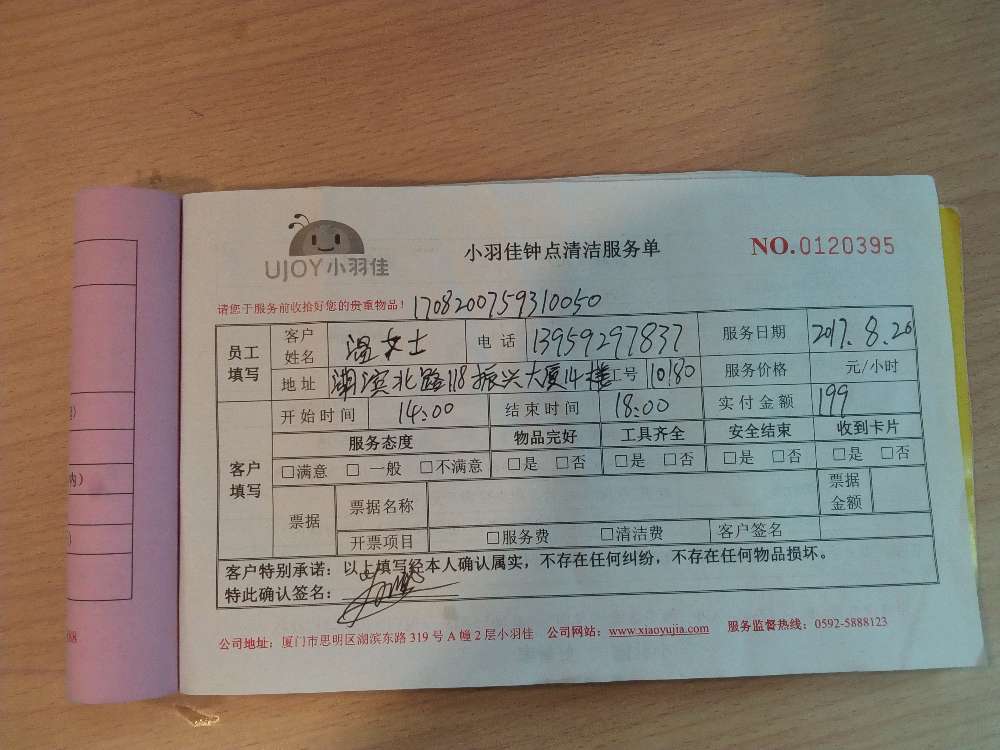 UJOY小羽佳
小羽佳钟点清洁服务单
NO.0120395
请您于服务前收拾好您的贵重物品! 1708200759310050
员工填写 客户姓名 温女士 电话 13959297837 服务日期 2017.8.20
地址 湖滨北路118振兴大厦14楼 工号 10180 服务价格 元/小时
客户填写 开始时间 14:00 结束时间 18:00 实付金额 199
服务态度 物品完好 工具齐全 安全结束 收到卡片
□满意 □一般 □不满意 □是 □否 □是 □否 □是 □否 □是 □否
票据 票据名称 票据金额
开票项目 □服务费 □清洁费 客户签名
客户特别承诺:以上填写经本人确认属实,不存在任何纠纷,不存在任何物品损坏。
特此确认签名:
公司地址:厦门市思明区湖滨东路319号A幢2层小羽佳 公司网站:www.xiaoyujia.com 服务监督热线:0592-5888123